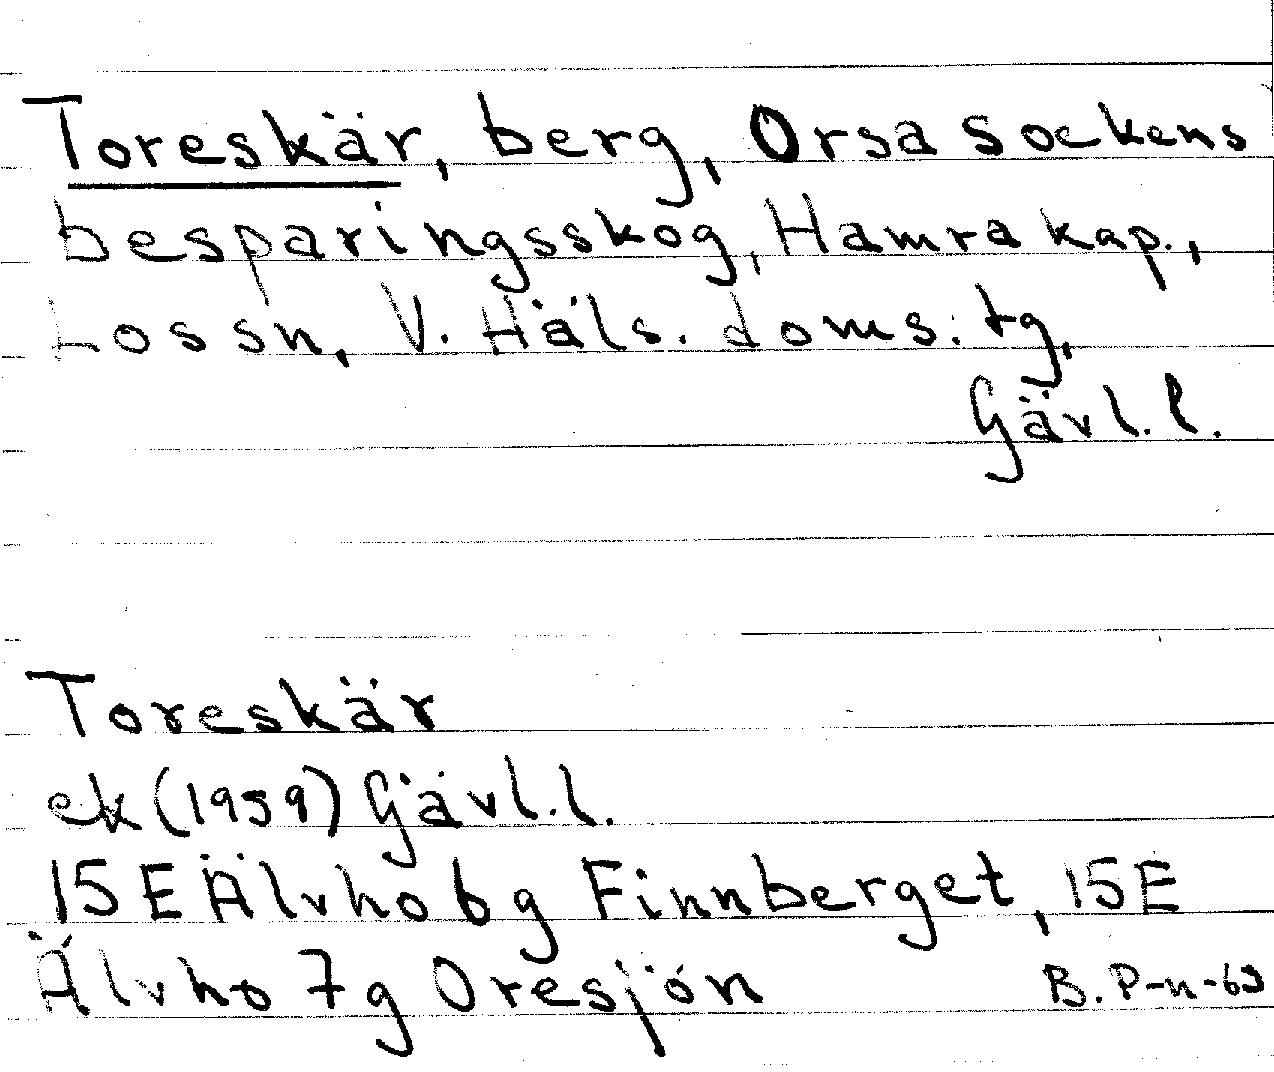 Toreskär, berg, Orsa sockens
besparingsskog, Hamra kap.,
Lossn, V. Häls. doms. tg,
Gävl. l.
Toreskär
ek (1959) Gävl. l.
15 E Älvho 6 g Finnberget, 15 E
Älvho 7 g Oresjön
B. P-n-63